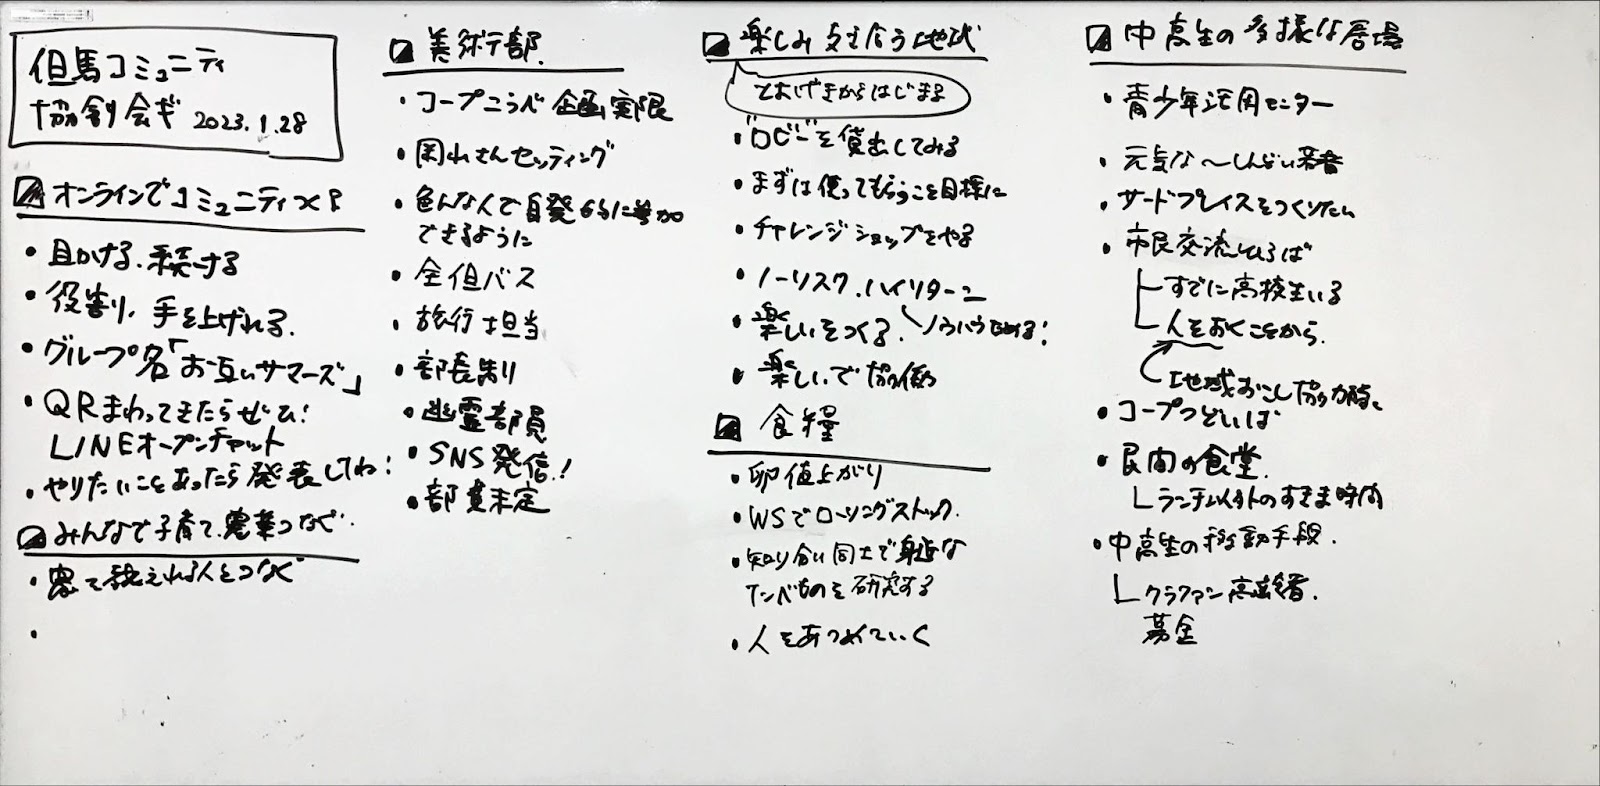 但馬コミュニティ
協創会ギ 2023.1.28
オンラインでコミュニティ
・手をかける、手続ける
・役割り、手を上げれる.
・グループ名「お互いサマーズ」
・QRまわってきたらぜひ!
LINEオープンチャット
・やりたいことあったら発表してね!
みんなで子育て、農業つなぐ.
・教えれる人をつなぐ
美術部.
・コープこうべ 企画実限
・さんセッティング
・色んな人で自発的に参加
できるように
・全但バス
・旅行担当
・部長あり
・幽霊部員
・SNS発信!
・部費未定
楽しみ 支え合う地域
とおげきからはじまる
・ロビーを貸出してみる
・まずは使ってもらうこと目標に
・チャレンジショップをやる
・ノーリスク.ハイリターン
・楽しいをつくる. ノウハウためる!
・楽しいで協働
食糧
・卵値上がり
・WSでローリングストック.
・知り合い同士で身近な
たべものを研究する
・人をあつめていく
中高生の多様な居場
・青少年活用センター
・元気な〜しんどい若者
・サードプレイスをつくりたい
・市民交流ひろば
すでに高校生いる
人をおくことから.
地域おこし協力隊
・コープつどいば
・民間の食堂.
ランチ以外のすきま時間
・中高生の移動手段.
クラファン 高齢者.
募金